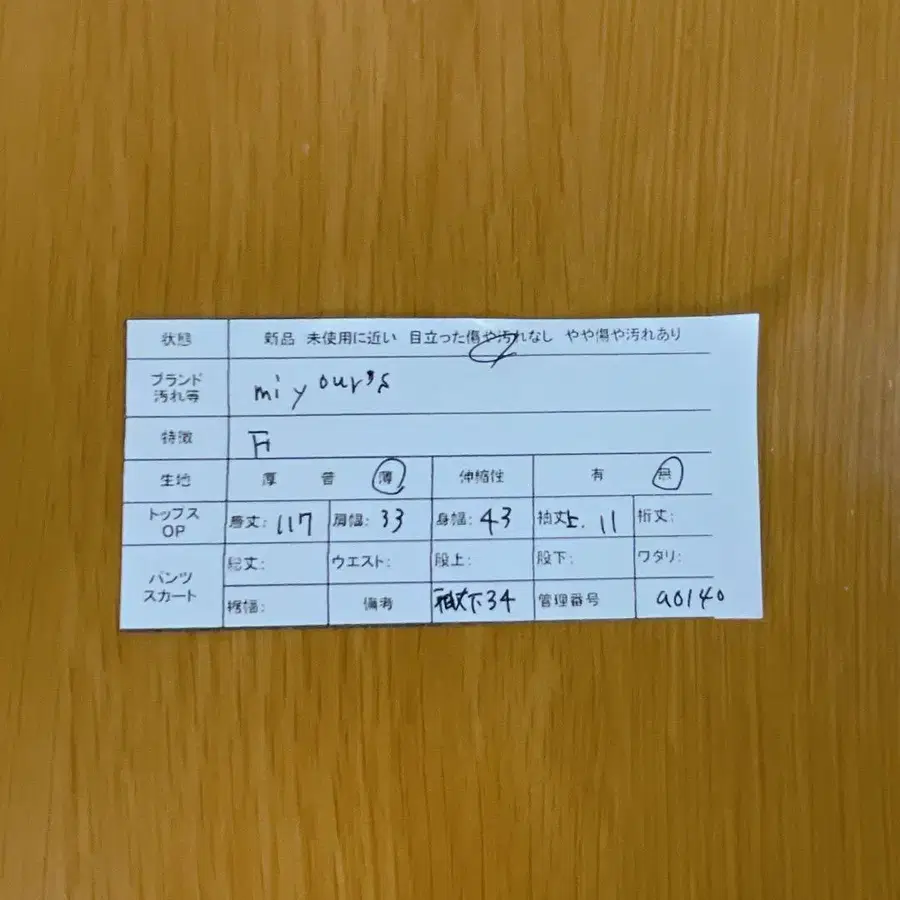 状態 新品 未使用に近い 目立った傷や汚れなし やや傷や汚れあり
ブランド
汚れ等 mi your's
特徴 F
生地 厚 普 薄 伸縮性 有 無
トップス
OP 着丈: 117 肩幅: 33 身幅: 43 袖丈上. 11 裄丈:
パンツ
スカート 総丈: ウエスト: 股上: 股下: ワタリ:
裾幅: 備考 袖丈下34 管理番号 a0140